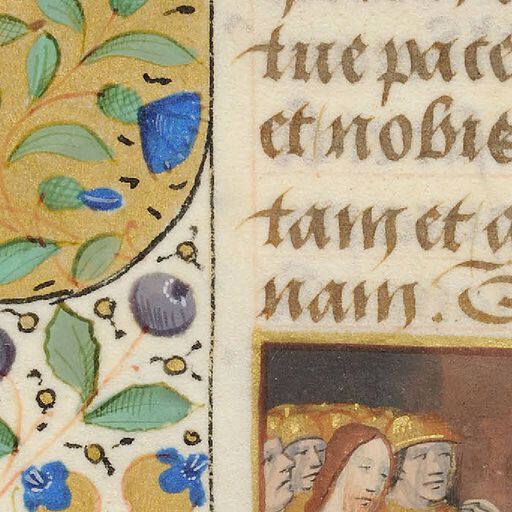 tue pace
et nobis
tam et
nam.